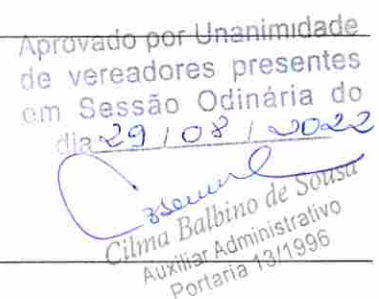 Aprovado por Unanimidade
de vereadores presentes
em Sessão Odinária do
dia 29 / 08 / 2022
Cilma Balbino de Sousa
Auxiliar Administrativo
Portaria 13/1996